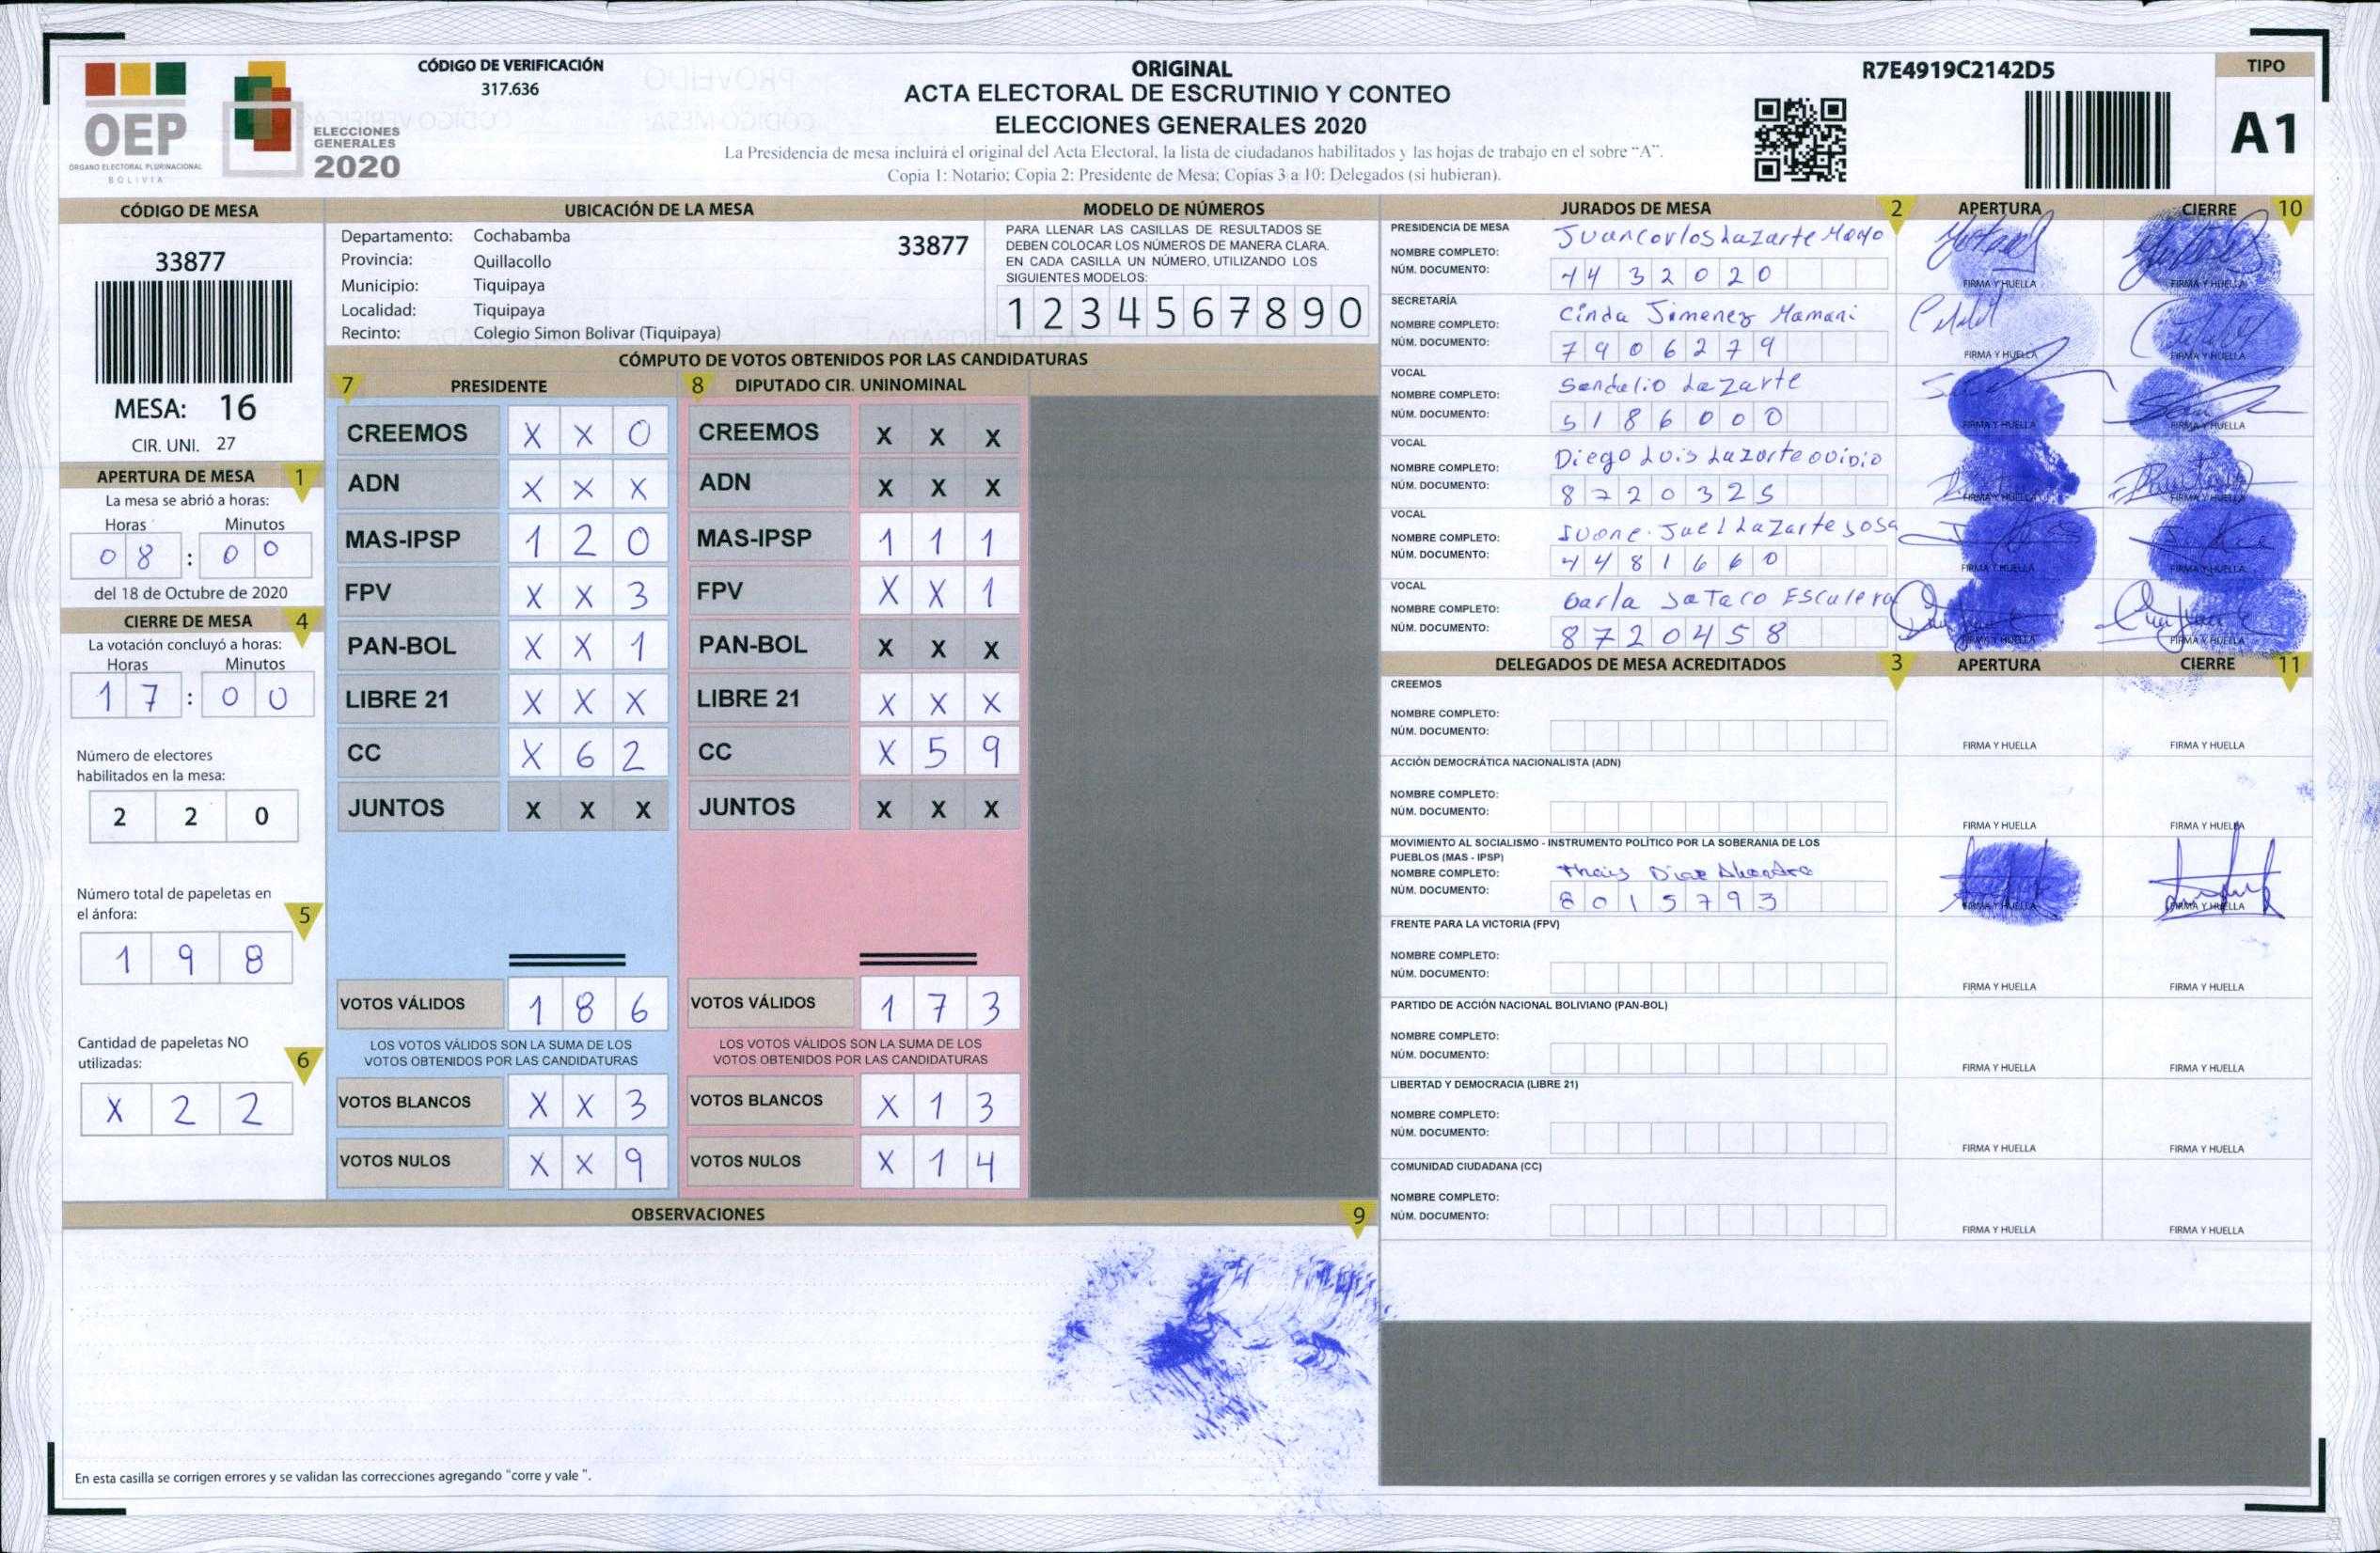 OEP
ÓRGANO ELECTORAL PLURINACIONAL
BOLIVIA
ELECCIONES
GENERALES
2020
CÓDIGO DE VERIFICACIÓN
317.636
ORIGINAL
ACTA ELECTORAL DE ESCRUTINIO Y CONTEO
ELECCIONES GENERALES 2020
La Presidencia de mesa incluirá el original del Acta Electoral, la lista de ciudadanos habilitados y las hojas de trabajo en el sobre “A”.
Copia 1: Notario; Copia 2: Presidente de Mesa; Copias 3 a 10: Delegados (si hubieran).
R7E4919C2142D5
TIPO
A1
CÓDIGO DE MESA
33877
MESA: 16
CIR. UNI. 27
APERTURA DE MESA 1
La mesa se abrió a horas:
Horas Minutos
08 : 00
del 18 de Octubre de 2020
CIERRE DE MESA 4
La votación concluyó a horas:
Horas Minutos
17 : 00
Número de electores
habilitados en la mesa:
2 2 0
Número total de papeletas en
el ánfora: 5
1 9 8
Cantidad de papeletas NO
utilizadas: 6
X 2 2
UBICACIÓN DE LA MESA
Departamento: Cochabamba 33877
Provincia: Quillacollo
Municipio: Tiquipaya
Localidad: Tiquipaya
Recinto: Colegio Simon Bolivar (Tiquipaya)
MODELO DE NÚMEROS
PARA LLENAR LAS CASILLAS DE RESULTADOS SE
DEBEN COLOCAR LOS NÚMEROS DE MANERA CLARA.
EN CADA CASILLA UN NÚMERO, UTILIZANDO LOS
SIGUIENTES MODELOS:
1 2 3 4 5 6 7 8 9 0
CÓMPUTO DE VOTOS OBTENIDOS POR LAS CANDIDATURAS
7 PRESIDENTE 8 DIPUTADO CIR. UNINOMINAL
CREEMOS X X 0 CREEMOS X X X
ADN X X X ADN X X X
MAS-IPSP 1 2 0 MAS-IPSP 1 1 1
FPV X X 3 FPV X X 1
PAN-BOL X X 1 PAN-BOL X X X
LIBRE 21 X X X LIBRE 21 X X X
CC X 6 2 CC X 5 9
JUNTOS X X X JUNTOS X X X
VOTOS VÁLIDOS 1 8 6 VOTOS VÁLIDOS 1 7 3
LOS VOTOS VÁLIDOS SON LA SUMA DE LOS LOS VOTOS VÁLIDOS SON LA SUMA DE LOS
VOTOS OBTENIDOS POR LAS CANDIDATURAS VOTOS OBTENIDOS POR LAS CANDIDATURAS
VOTOS BLANCOS X X 3 VOTOS BLANCOS X 1 3
VOTOS NULOS X X 9 VOTOS NULOS X 1 4
OBSERVACIONES 9
En esta casilla se corrigen errores y se validan las correcciones agregando "corre y vale ".
JURADOS DE MESA 2 APERTURA CIERRE 10
PRESIDENCIA DE MESA
NOMBRE COMPLETO: Juan Carlos Lazarte
NÚM. DOCUMENTO: 4432020 FIRMA Y HUELLA FIRMA Y HUELLA
SECRETARÍA
NOMBRE COMPLETO: Cinda Jimenez Mamani
NÚM. DOCUMENTO: 7906279 FIRMA Y HUELLA FIRMA Y HUELLA
VOCAL
NOMBRE COMPLETO: Sandalio Lazarte
NÚM. DOCUMENTO: 5186000 FIRMA Y HUELLA FIRMA Y HUELLA
VOCAL
NOMBRE COMPLETO: Diego Luis Lazarte Ovidio
NÚM. DOCUMENTO: 8720325 FIRMA Y HUELLA FIRMA Y HUELLA
VOCAL
NOMBRE COMPLETO: Ivone Jael Lazarte Sosa
NÚM. DOCUMENTO: 4481660 FIRMA Y HUELLA FIRMA Y HUELLA
VOCAL
NOMBRE COMPLETO: Escalera
NÚM. DOCUMENTO: 8720458 FIRMA Y HUELLA FIRMA Y HUELLA
DELEGADOS DE MESA ACREDITADOS 3 APERTURA CIERRE 11
CREEMOS
NOMBRE COMPLETO:
NÚM. DOCUMENTO: FIRMA Y HUELLA FIRMA Y HUELLA
ACCIÓN DEMOCRÁTICA NACIONALISTA (ADN)
NOMBRE COMPLETO:
NÚM. DOCUMENTO: FIRMA Y HUELLA FIRMA Y HUELLA
MOVIMIENTO AL SOCIALISMO - INSTRUMENTO POLÍTICO POR LA SOBERANIA DE LOS
PUEBLOS (MAS - IPSP)
NOMBRE COMPLETO: Thais Diaz
NÚM. DOCUMENTO: 8015793 FIRMA Y HUELLA FIRMA Y HUELLA
FRENTE PARA LA VICTORIA (FPV)
NOMBRE COMPLETO:
NÚM. DOCUMENTO: FIRMA Y HUELLA FIRMA Y HUELLA
PARTIDO DE ACCIÓN NACIONAL BOLIVIANO (PAN-BOL)
NOMBRE COMPLETO:
NÚM. DOCUMENTO: FIRMA Y HUELLA FIRMA Y HUELLA
LIBERTAD Y DEMOCRACIA (LIBRE 21)
NOMBRE COMPLETO:
NÚM. DOCUMENTO: FIRMA Y HUELLA FIRMA Y HUELLA
COMUNIDAD CIUDADANA (CC)
NOMBRE COMPLETO:
NÚM. DOCUMENTO: FIRMA Y HUELLA FIRMA Y HUELLA